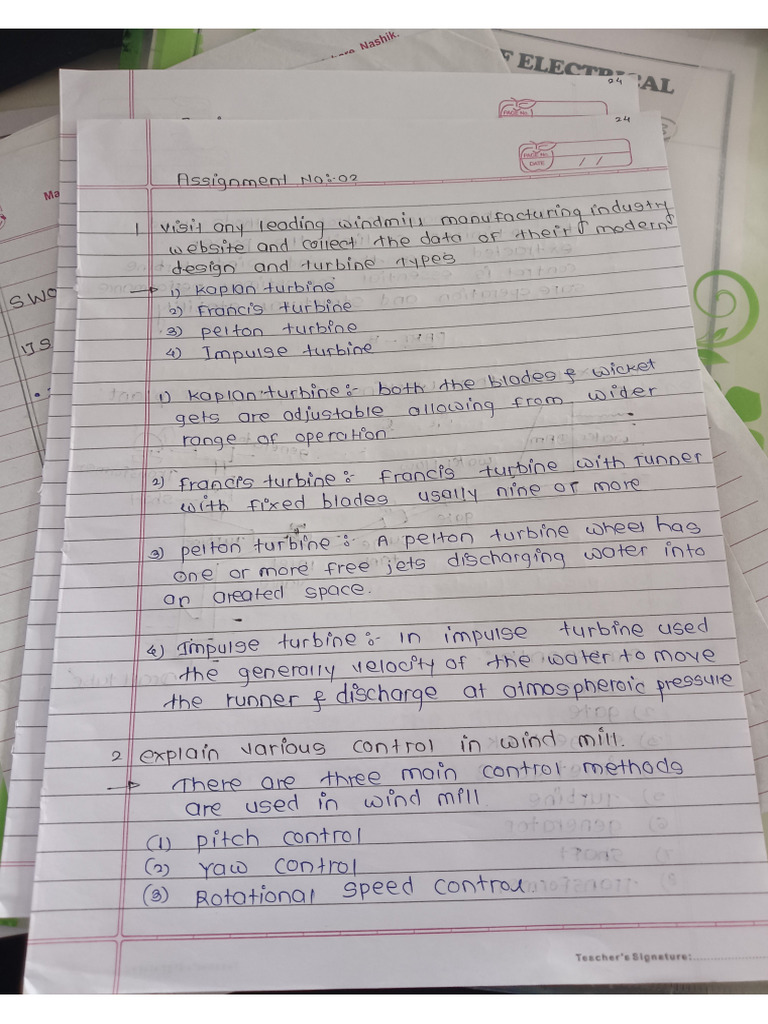 are Nashik.
F ELECTRICAL
24
PAGE No.
24
PAGE No.
DATE / /
Ma
Assignment No:-02
1 Visit any leading windmill manufacturing industry
website and collect the data of their modern
design and turbine types
→ 1) Kaplan turbine
2) Francis turbine
3) pelton turbine
4) Impulse turbine
SWO
1) Kaplan turbine:- both the blades & wicket
gets are adjustable allowing from wider
range of operation.
2) Francis turbine:- Francis turbine with runner
with fixed blades usally nine or more
3) pelton turbine:- A pelton turbine wheel has
one or more free jets discharging water into
an areated space.
4) Impulse turbine:- in impulse turbine used
the generally velocity of the water to move
the runner & discharge at atmospheroic pressure
2 explain various control in wind mill.
→ There are three main control methods
are used in wind mill.
(1) pitch control
(2) Yaw control
(3) Rotational speed control
Teacher's Signature: